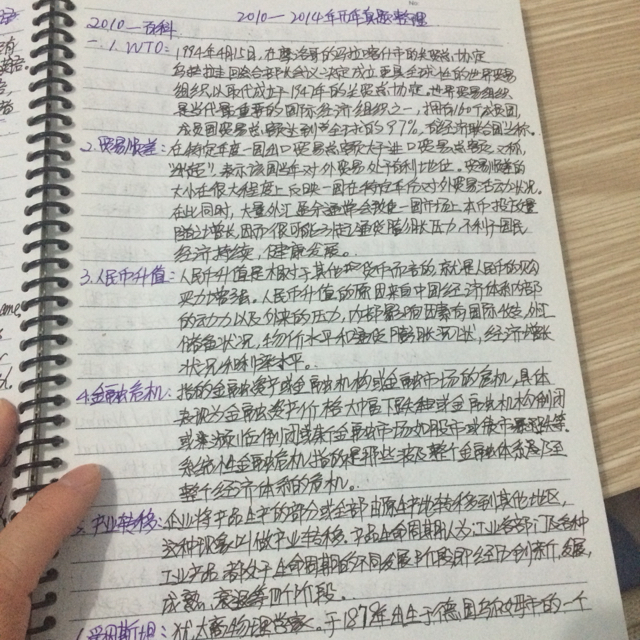 2010—2014年历年真题整理
2010—百科
一、1. WTO：1994年4月15日，在摩洛哥的马拉喀什市的关贸总协定
乌拉圭回合部长会议决定成立更具全球性的世界贸易
组织，以取代成立于1947年的关贸总协定。世界贸易组织
是当代最重要的国际经济组织之一，拥有160个成员国，
成员国贸易总额达到全球的97%，有经济联合国之称。
2. 贸易顺差：在特定年度一国出口贸易总额大于进口贸易总额，又称
“出超”，表示该国当年对外贸易处于有利地位。贸易顺差的
大小在很大程度上反映一国在特定年份对外贸易活动状况。
在此同时，大量外汇盈余通常会致使一国市场上本币投放量
随之增长，因而很可能引起通货膨胀压力，不利于国民
经济持续，健康发展。
3. 人民币升值：人民币升值是相对于其他货币而言的，就是人民币的购
买力增强。人民币升值的原因来自中国经济体系内部
的动力以及外来的压力，内部影响因素有国际收支，外汇
储备状况，物价水平和通货膨胀状况，经济增长
状况和利率水平。
4. 金融危机：指的金融资产或金融机构或金融市场的危机，具体
表现为金融资产价格大幅下跌或金融机构倒闭
或濒临倒闭或某个金融市场如股市或债市暴跌等。
系统性金融危机指的是那些波及整个金融体系乃至
整个经济体系的危机。
产业转移：企业将产品生产的部分或全部由原生产地转移到其他地区，
这种现象叫做产业转移。产品生命周期认为，工业各部门及各种
工业产品，都处于生命周期的不同发展阶段即经历创新，发展，
成熟，衰退等四个阶段。
爱因斯坦：犹太裔物理学家。于1879年出生于德国乌尔姆市的一个